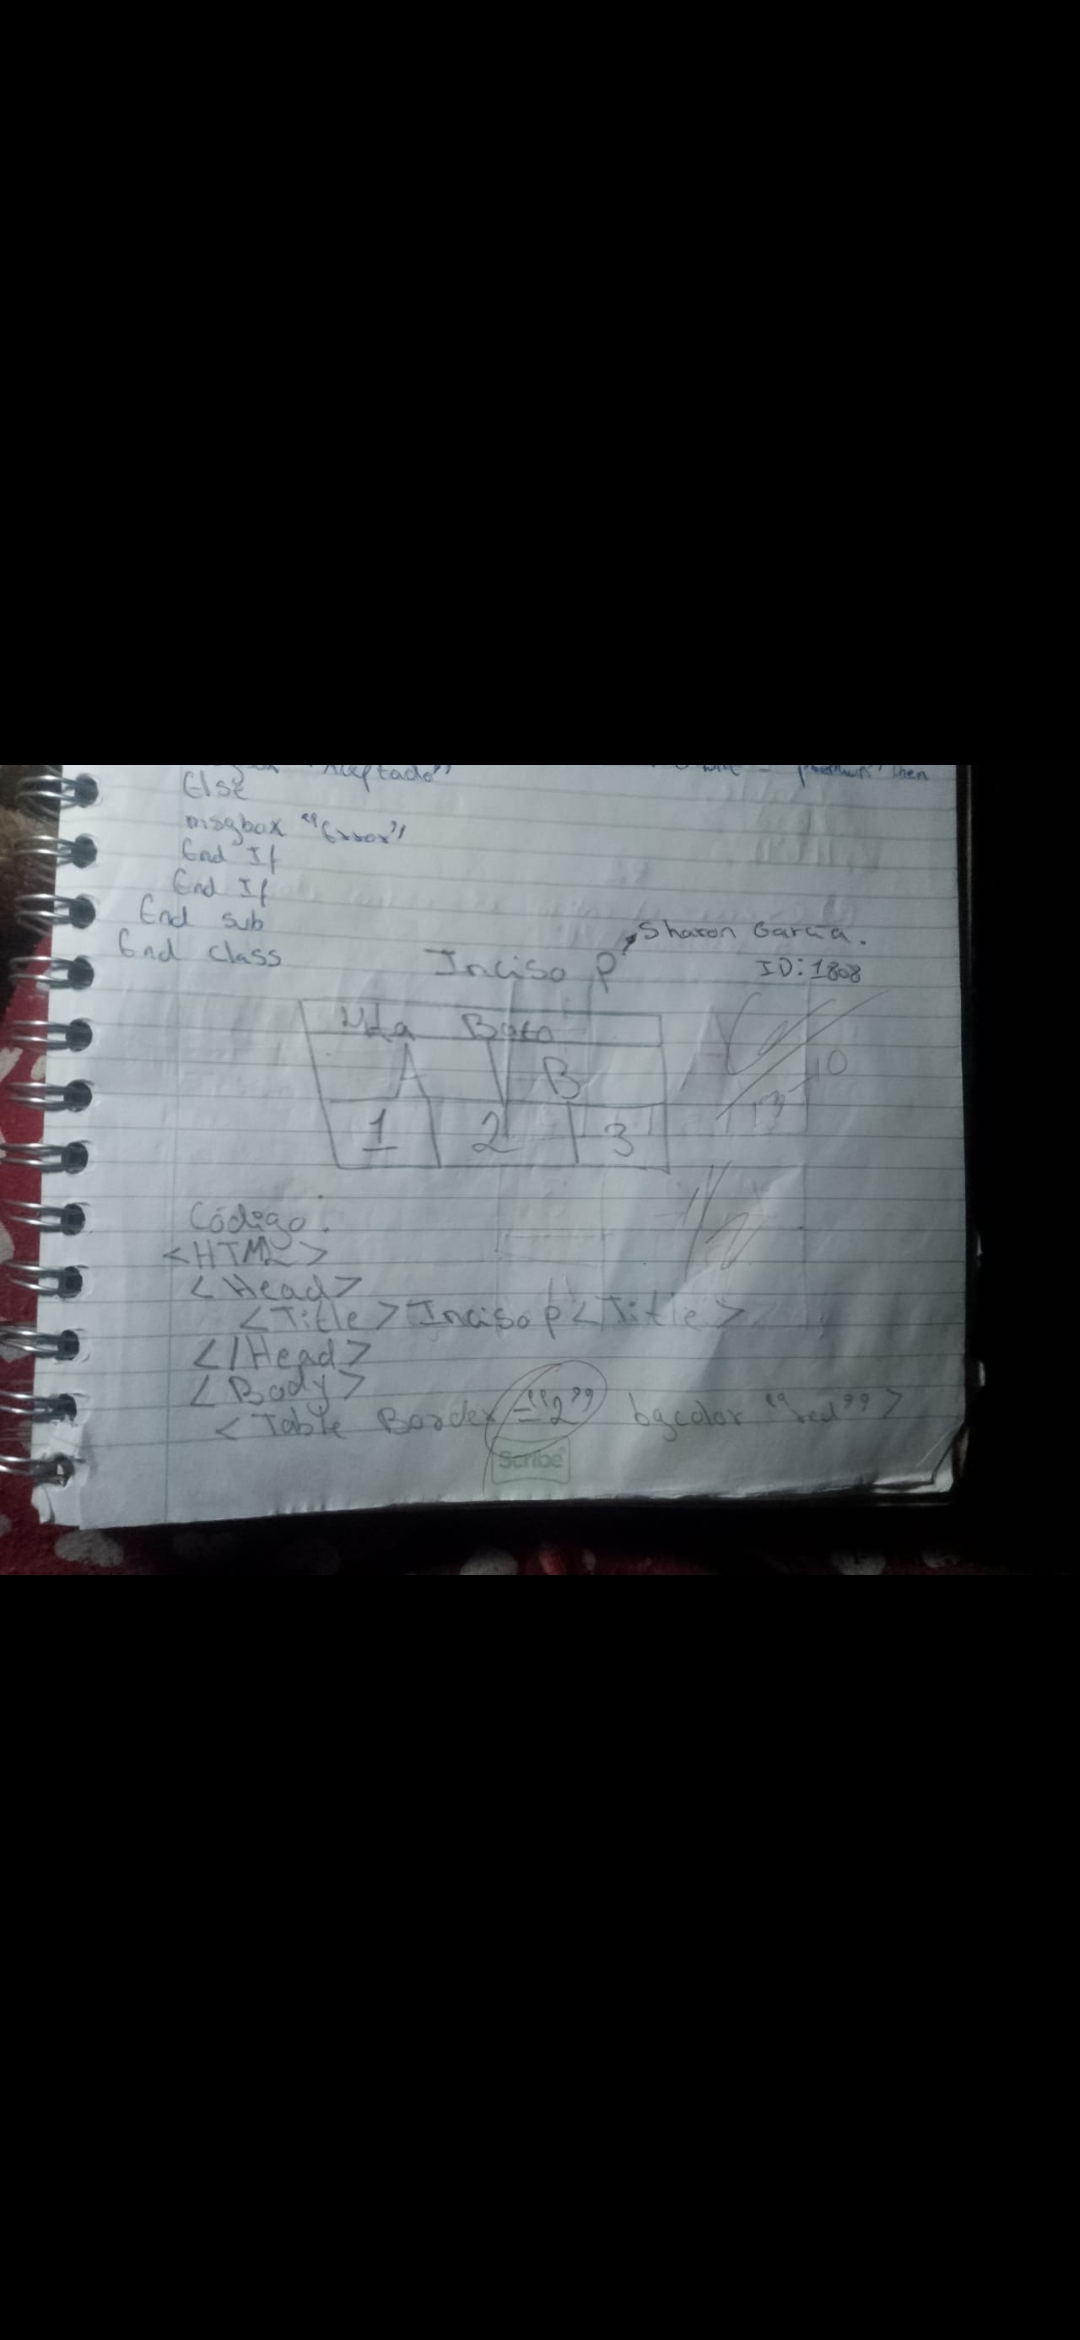 "Aceptado"
Else
msgbox "Error"
End If
End If
End sub
End class
Sharon García.
Inciso P
ID: 1808
Bato
A B
1 2 3
10
Código:
<HTML>
<Head>
<Title>Inciso P<Title>
</Head>
<Body>
<Table Border="2" bgcolor "red">
Scribe